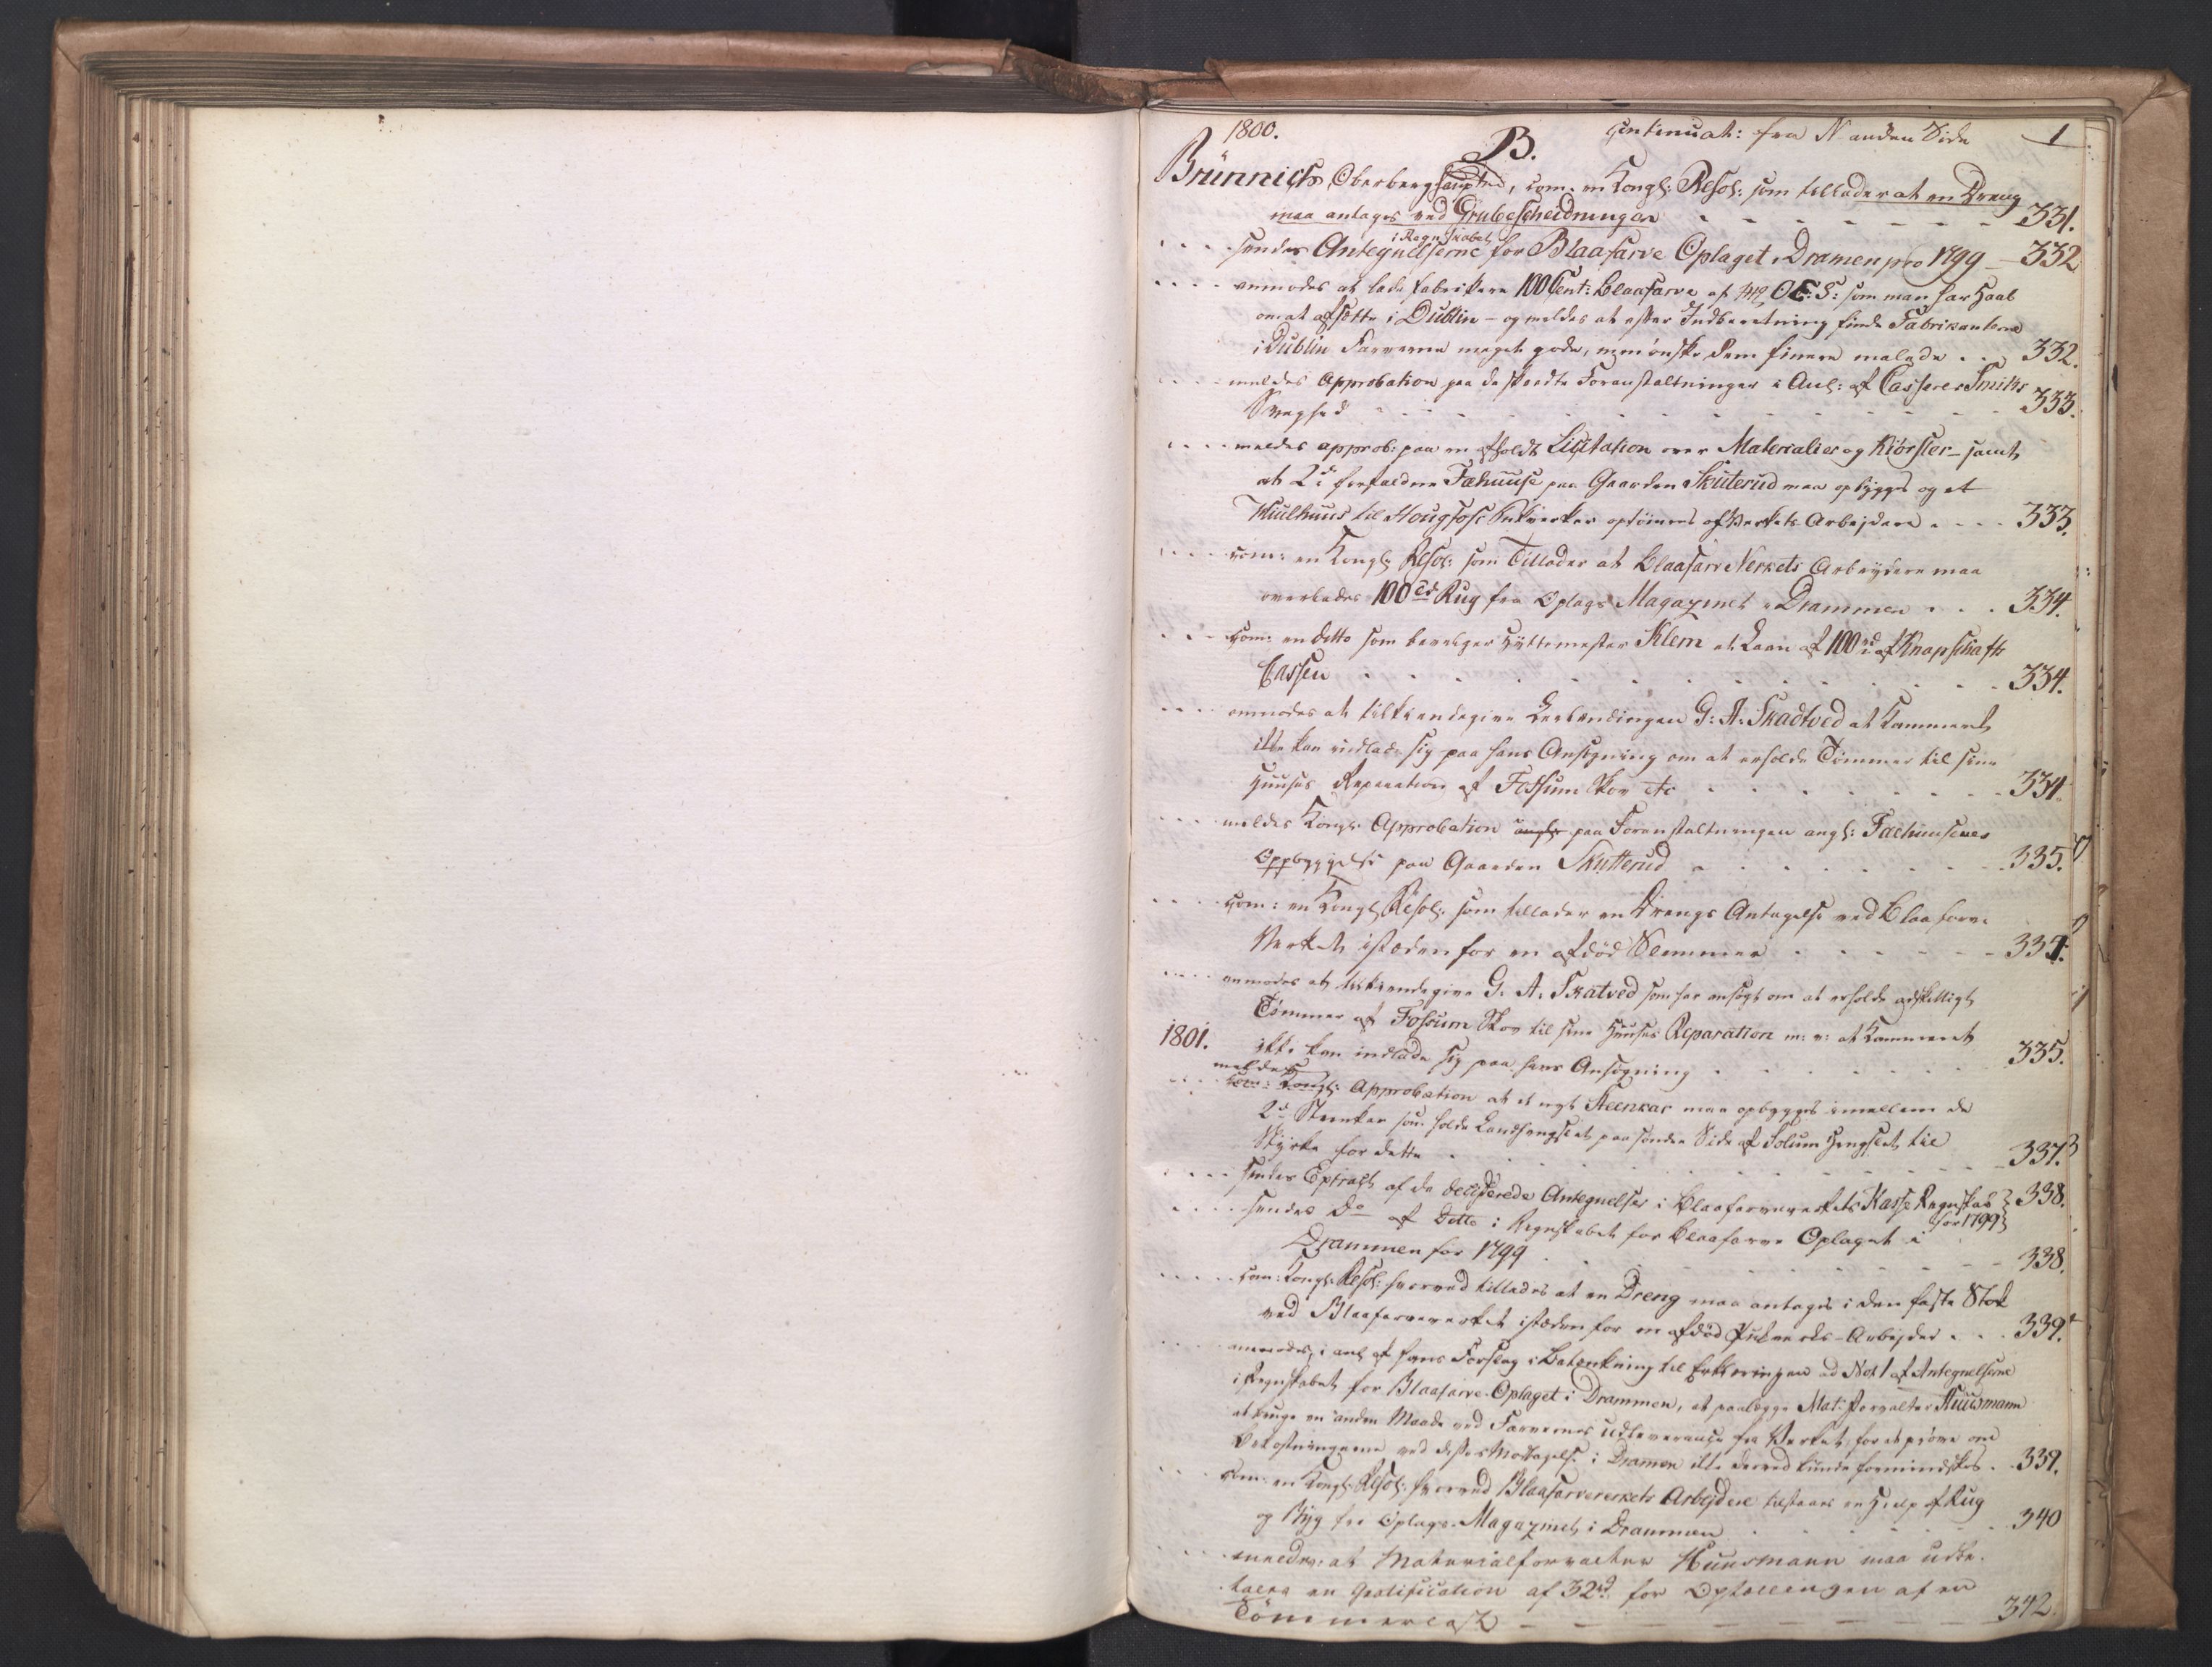 1800.
B.
continuat: fra N anden Side
1
Brünnich Oberberghauptm, com. en Kongl: Resol: som tillader at en Dreng
maa antages ved Grubescheidningen - - - - - - 331.
i Regnskabet
.... sendes Antegnelserne for Blaafarve Oplaget i Dramen pro 1799 - 332
.... anmodes at lade fabrikere 100 Cent: Blaafarve af OE:S: som man har Haab
om at afsætte i Dublin - og meldes at efter Indberetning finde Fabrikanterne
i Dublin Farverne meget gode, men ønske dem finere malede . . 332.
.... meldes Approbation paa de skeedte Foranstaltninger i Anl: af Casserer Smiths
Svaghed - - - - 333.
.... meldes approb: paa en afholdt Licitation over Materialier og Kiørsler - samt
at 2de forfaldne Fæhuuse paa Gaarden Skuterud maa opbygges og et
Kiulhuus til Hougfoss Pukværker optømres af Værkets Arbejdere . - - - 333.
.... com: en Kongl: Resol: som Tillader at Blaafarve Verkets Arbeydere maa
overlades 100 td Rug fra Oplags Magazinet i Drammen . . . 334.
.... com: en ditto som bevilger Hyttemester Klem et Laan af 100 rd af Knapschafts
Cassen - - - - 334.
.... anmodes at tilkiendegive Leylendingen G: A: Skadtved at Kammeret
ikke kan indlade sig paa hans Ansøgning om at erholde Tømmer til sine
Huuses Reparation af Fossum Skov etc - - - - 334.
.... meldes Kongl: Approbation paa Foranstaltningen angl: Fæehuusenes
Oppbyggelse paa Gaarden Skutterud - - - - 335.
.... com: en Kongl: Resol: som tillader en Drengs Antagelse ved Blaafarve
Verket istædenfor en afdød Slemmer - - - - 335.
.... anmodes at tilkiendegive G. A. Skatved som har ansøgt om at erholde adskilligt
Tømmer af Fossum Skov til sine Huuses Reparation m: v: at Kammeret
1801.
ikke kan indlade sig paa hans Ansøgning - - - - 335.
meldes
.... com: Kongl: Approbation at et nyt Steenkar maa opbygges imellem de
2de Steenkar som holde Landhengslet paa søndre Side af Solum Hengslet til
Styrke for dette - - - - 337.
.... sendes Extract af de deciderede Antegnelser i Blaafarveverkets Kasse Regnskab
for 1799 } 338.
.... sendes Do af Ditto i Regnskabet for Blaafarve Oplaget i
Drammen for 1799 - - - - 338.
.... com: Kongl: Resol: hvorved tillades at en Dreng maa antages i den faste Stok
ved Blaafarveverket istædenfor en afdød Pukverks-Arbejder . . . 339.
.... anmodes, i anl af hans Forslag i Betænkning til ad Not 1 af Antegnelserne
i Regnskabet for Blaafarve-Oplaget i Drammen, at paalægge Mat: Forvalter Huusmann
at bruge en anden Maade ved Farvernes Udleverance fra Verket, for at prøve om
Bekostningerne ved disses Modtagelse i Dramen ikke derved kunde formindskes . . 339.
.... com: en Kongl: Resol: hvorved Blaafarververkets Arbejdere tilstaaes en Hielp af Rug
og Byg fra Oplags-Magazinet i Drammen - - - - 340
.... meldes: at Materialforvalter Huusmann maa udbe-
tales en Gratification af 32 rd for Optellingen af en
Tømmerlast - - - - 342.